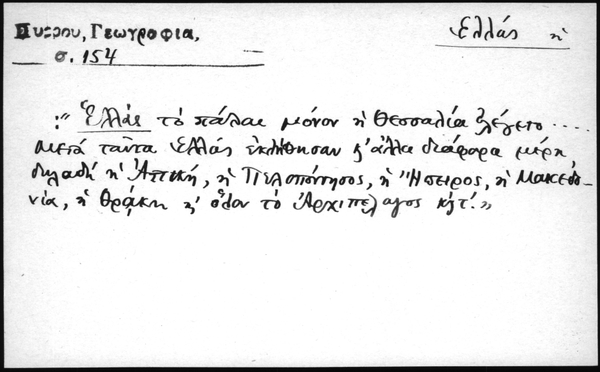 Πύρρου, Γεωγραφία,
σ. 154
Ἑλλάς ἡ
:" Ἑλλάς τὸ πάλαι μόνον ἡ Θεσσαλία ἐλέγετο ....
μετὰ ταῦτα Ἑλλάς ἐκλήθησαν κ' ἄλλα διάφορα μέρη,
δηλαδὴ ἡ Ἀττική, ἡ Πελοπόννησος, ἡ Ἤπειρος, ἡ Μακεδο-
νία, ἡ Θράκη κ' ὅλον τὸ Ἀρχιπέλαγος κ.τ.λ.»